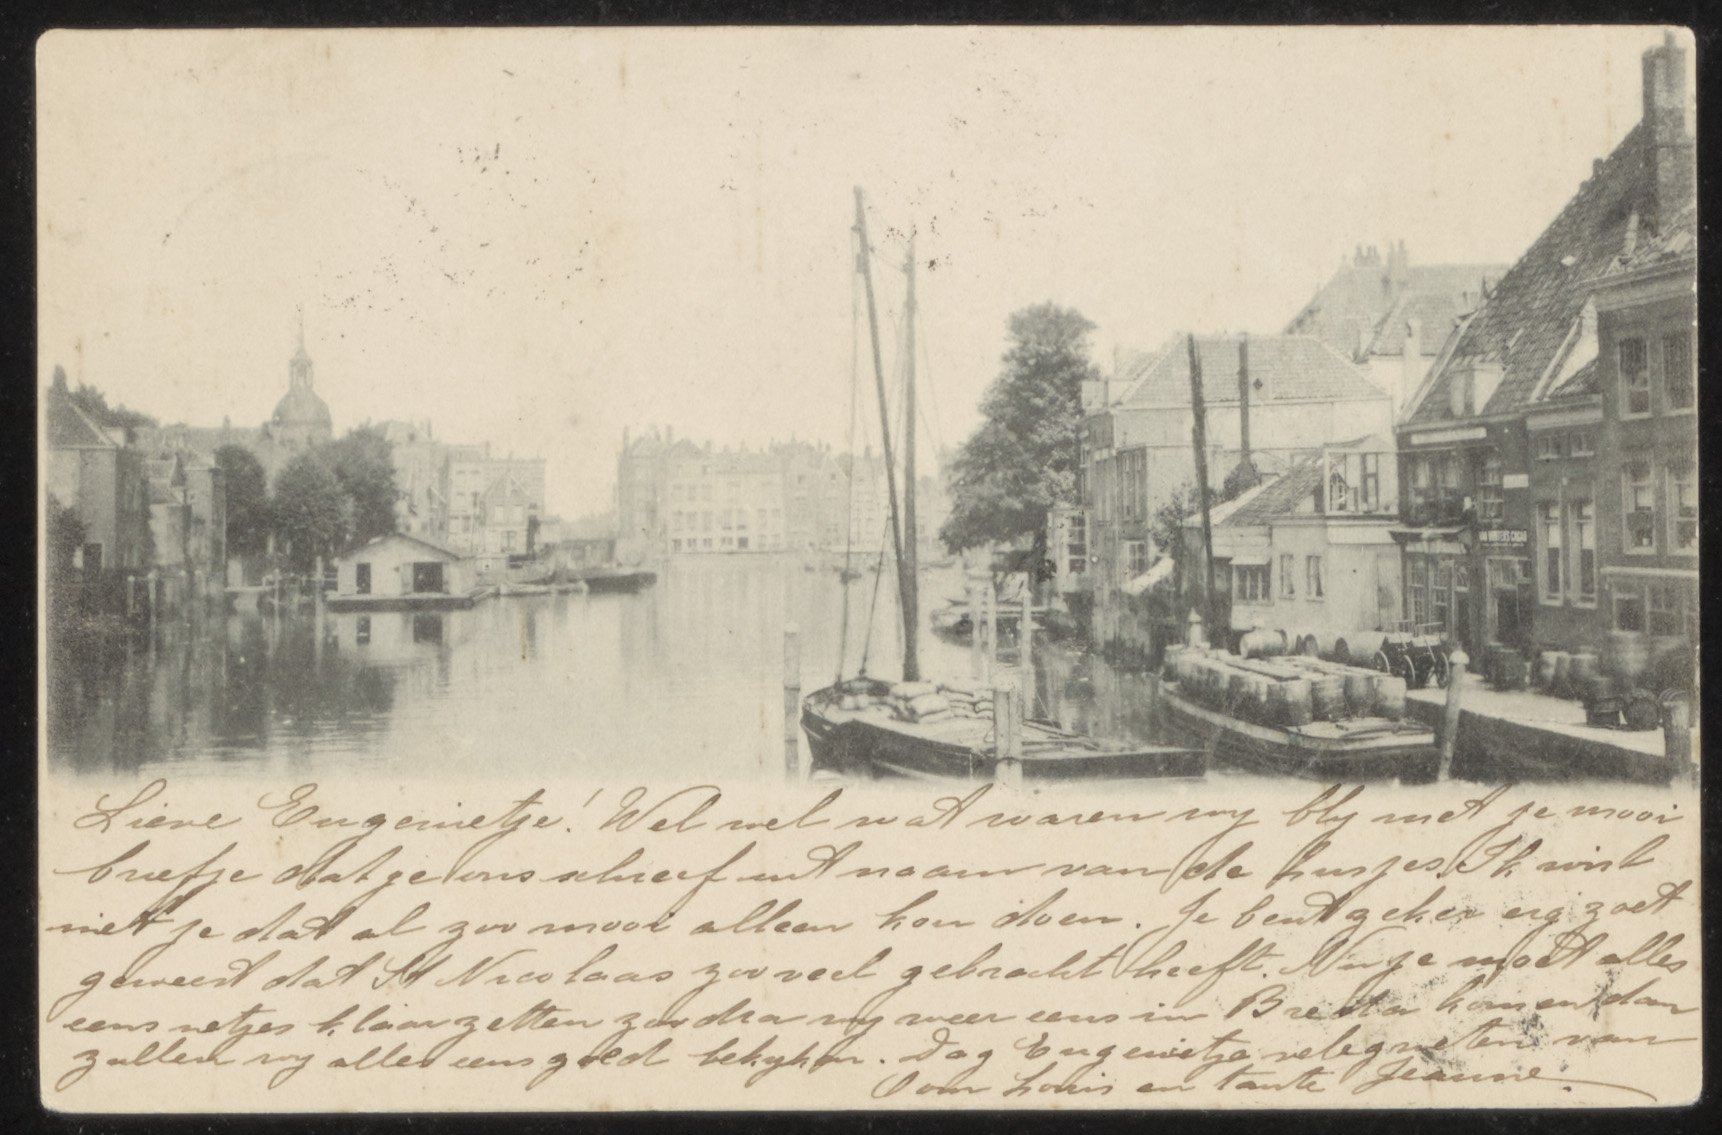 VAN HOUTEN'S CACAO
Lieve Eugenietje! Wel wel wat waren wy bly met je mooi
briefje dat je ons schreef uit naam van de zusjes. Ik wist
niet je dat al zoo mooi alleen kon doen. Je bent zeker erg zoet
geweest dat St Nicolaas zooveel gebracht heeft. Nu je moet alles
eens netjes klaar zetten zoodra wy weer eens in Breda komen dan
zullen wy alles eens goed bekyken. Dag Eugenietje vele groeten van
Oom Louis en tante Jeanne.